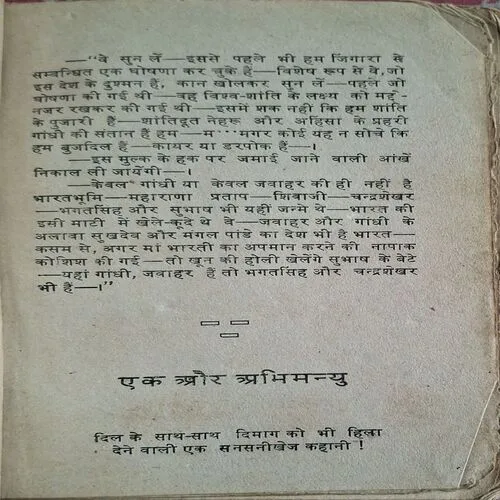 —"वे सुन लें—इससे पहले भी हम जिंगारा से
सम्बन्धित एक घोषणा कर चुके हैं—विशेष रूप से वे,जो
इस देश के दुश्मन हैं, कान खोलकर सुन लें—पहले जो
घोषणा की गई थी—वह विश्व-शांति के लक्ष्य को मद्दे-
नजर रखकर की गई थी—इसमें शक नहीं कि हम शांति
के पुजारी हैं—शांतिदूत नेहरू और अहिंसा के प्रहरी
गांधी की संतान हैं हम—म···मगर कोई यह न सोचे कि
हम बुजदिल हैं—कायर या डरपोक हैं—।
—इस मुल्क के हक पर जमाई जाने वाली आंखें
निकाल ली जायेंगी—।
—केवल गांधी या केवल जवाहर की ही नहीं है
भारतभूमि—महाराणा प्रताप—शिवाजी—चन्द्रशेखर
—भगतसिंह और सुभाष भी यहीं जन्मे थे—भारत की
इसी माटी में खेले-कूदे थे वे—जवाहर और गांधी के
अलावा सुखदेव और मंगल पांडे का देश भी है भारत—
कसम से, अगर मां भारती का अपमान करने की नापाक
कोशिश की गई—तो खून की होली खेलेंगे सुभाष के बेटे
—यहां गांधी, जवाहर हैं तो भगतसिंह और चन्द्रशेखर
भी हैं—।"
एक और अभिमन्यु
दिल के साथ-साथ दिमाग को भी हिला
देने वाली एक सनसनीखेज कहानी !